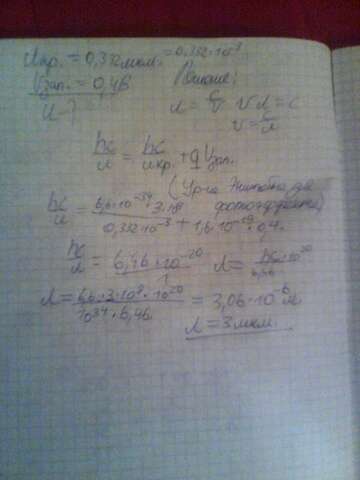 λкр. = 0,332 мкм. = 0,332·10⁻³
Uзап. = 0,4В Решение:
λ - ? λ = c/ν νλ = c
ν = c/λ
hc/λ = hc/λкр. + qUзап.
(Ур-е Эйнштейна для фотоэффекта)
hc/λ = 6,6·10⁻³⁴·3·10⁸ / 0,332·10⁻³ + 1,6·10⁻¹⁹·0,4.
hc/λ = 6,46·10⁻²⁰ / 1 λ = hc·10²⁰ / 6,46
λ = 6,6·3·10⁸·10²⁰ / 10³⁴·6,46 = 3,06·10⁻⁶ м
λ = 3 мкм.